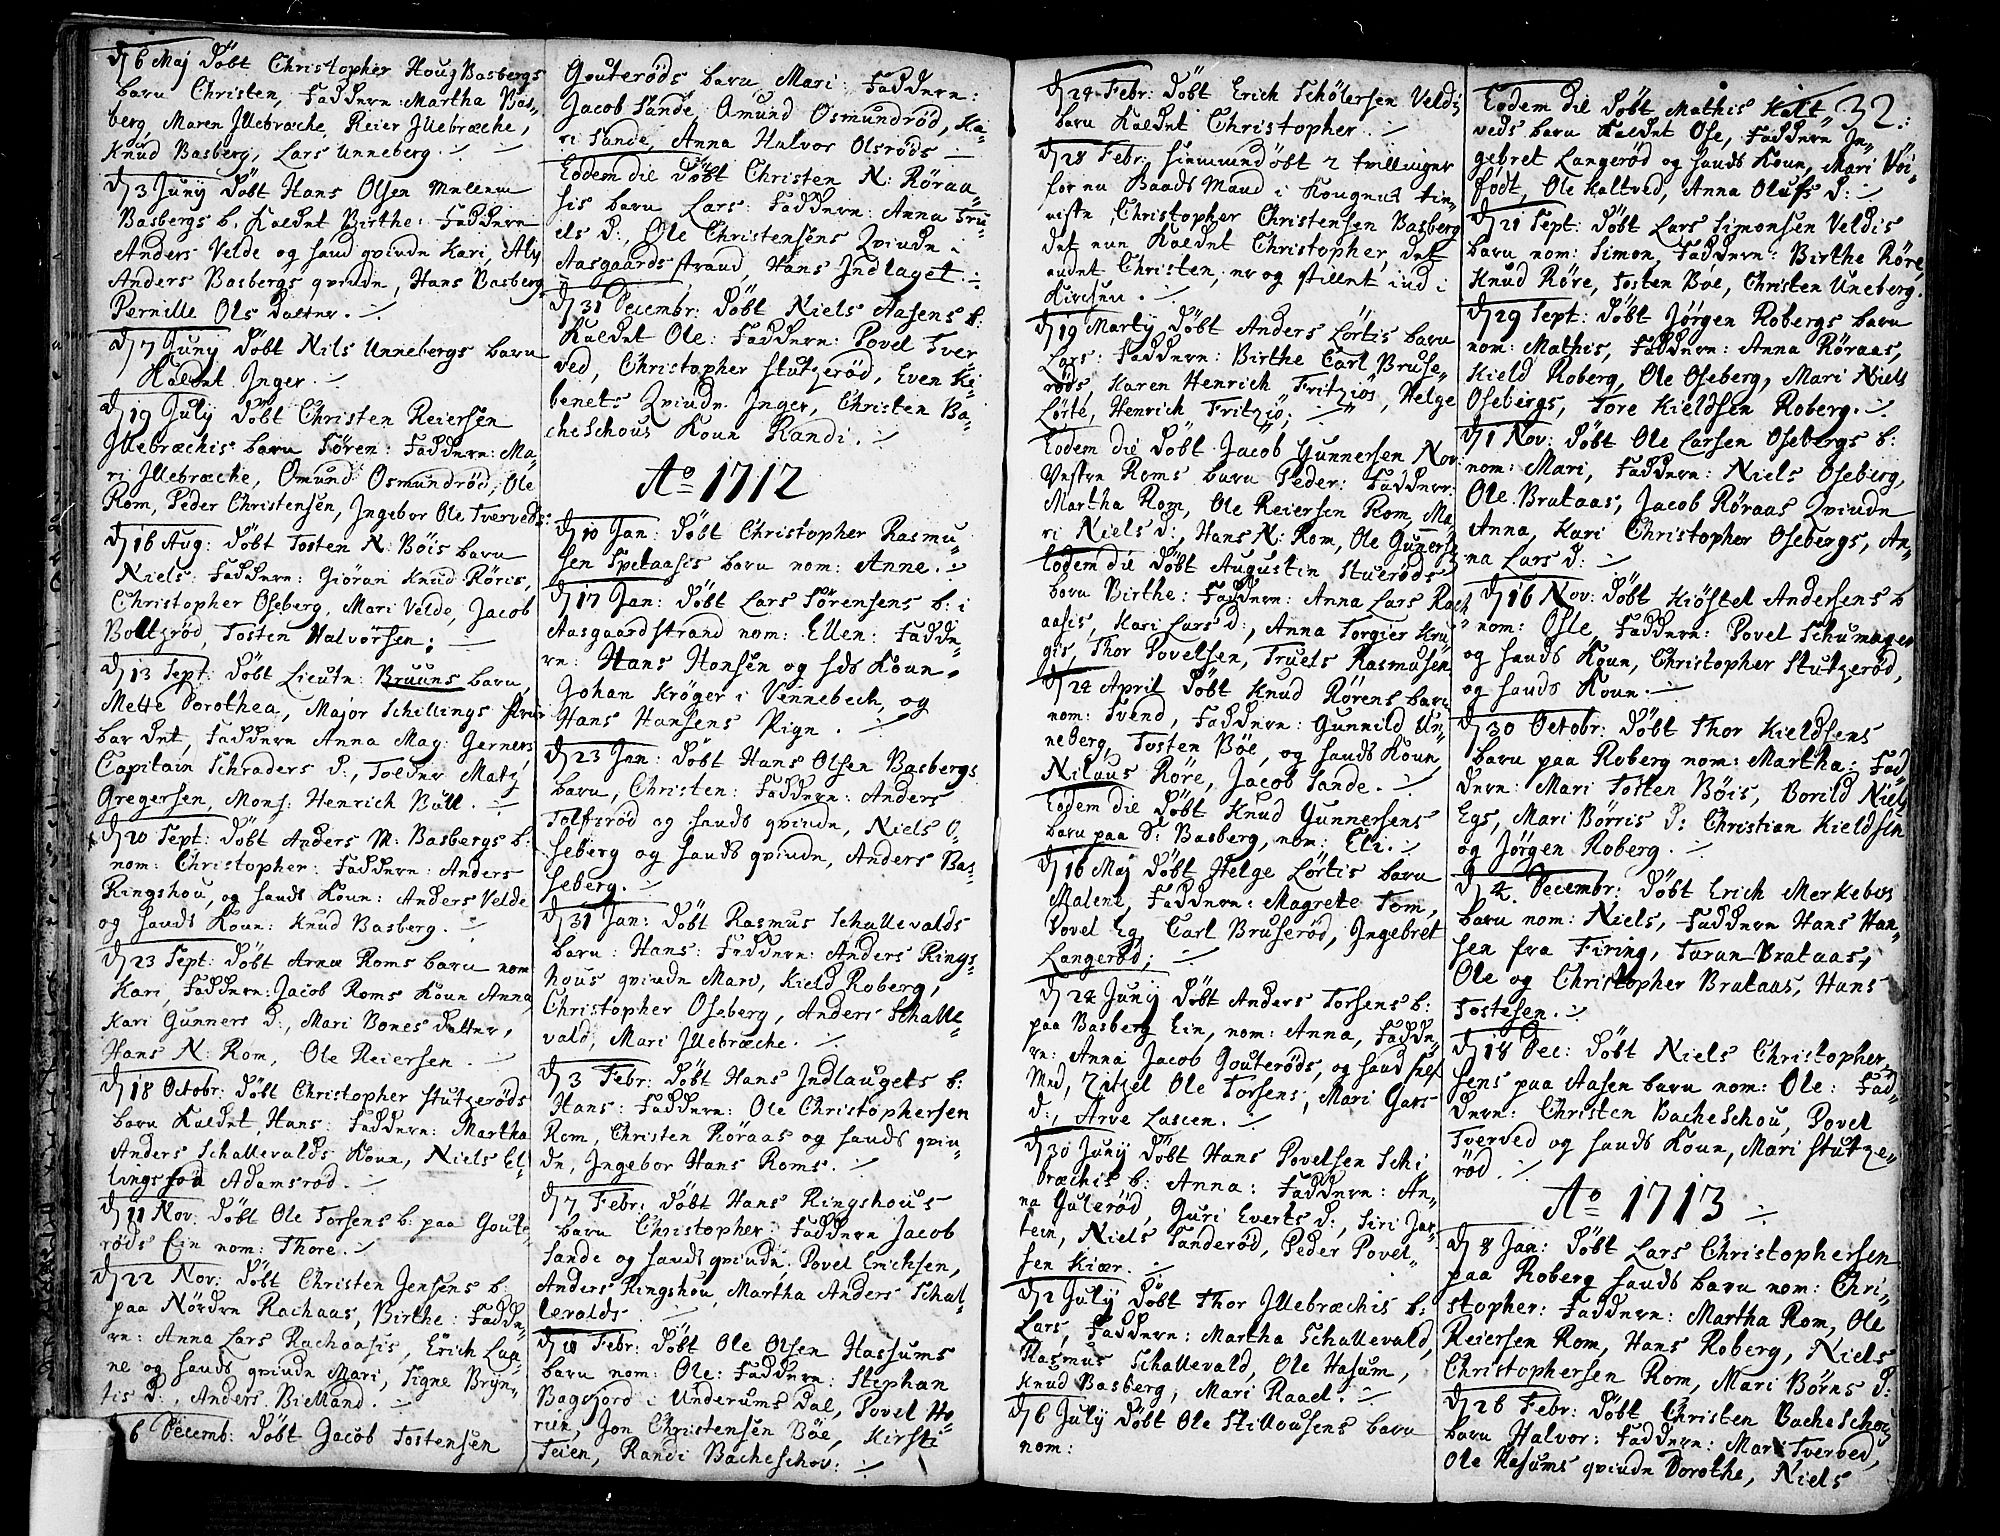 d 6 Maj Döbt Christopher Houg Basbergs
barn Christen, Faddern: Martha Bas-
berg, Maren Jllebræche, Reier Jllebræche,
Knud Basberg, Lars Unneberg. ⁒
d 3 Junÿ Döbt Hans Olsen
Basbergs b. Kaldet Birthe: Faddern
Anders Velde og hand qvinde Kari, Als
Anders Basbergs qvinde, Hans Basberg
Pernille Ols datter. ⁒
d 7 Junÿ Döbt Nils Unnebergs barn
Kaldet Inger. ⁒
d 19 Julÿ Döbt Christen Reiersen
Jllebræchis barn Sören: Faddern: Ma-
ri Jllebræche, Omund Osmundröd, Ole
Rom, Peder Christensen, Ingebor Ole Tverveds.
d 16 Aug: Döbt Tosten N: Böis barn
Niels: Faddern: Giöran Knud Röris,
Christopher Oseberg, Mari Velde, Jacob
Boltzröd, Tosten Halvorsen; ⁒
d 13 Sept: Döbt Lieutn: Bruuns barn
Mette Dorothea, Major Schillings frue
bar det, Faddern Anna Mag: Gerners,
Capitain Schraders d:, Tolder Matz
Gregersen, Mons: Henrich Büll. ⁒
d 20 Sept: Döbt Anders M: Basbergs b:
nom: Christopher: Faddern: Anders
Ringshou, og hands Koun: Anders Velde
og hands Koun: Knud Basberg. ⁒
d 23 Sept: Döbt Arne Roms barn nom
Kari, Faddern: Jacob Roms Koun Anna,
Kari Gunners d:, Mari Bones datter,
Hans N: Rom, Ole Reiersen. ⁒
d 18 Octobr: Döbt Christopher Stutzeröds
barn Kaldet Hans: Faddern: Martha
Anders Schallevalds Koun, Niels El-
lingsröd Adamsröd. ⁒
d 11 Nov: Döbt Ole Torsens b: paa Goute-
röds Ein nom: Thore. ⁒
d 22 Nov: Döbt Christen Jensens b:
paa Nordre Rachaas, Birthe: Fadde-
rn: Anna Lars Rachaasis, Erich Lun-
ne og hands qvinde Mari, Signe Brÿn-
tis d:, Anders Bielland. ⁒
d 6 Decemb: Döbt Jacob Tostensen
Gouteröds barn Mari: Faddern:
Jacob Sande, Omund Osmundröd, Ka-
ri Sande, Anna Halvor Olsröds ⁒
Eodem die Döbt Christen N: Röraa-
sis barn Lars: Faddern: Anna Tru-
els d:, Ole Christensens Qvinde i
Aasgaards strand, Hans Indlaget. ⁒
d 31 Decembr: Döbt Niels Aasens b:
Kaldet Ole: Faddern: Povel Tver-
ved, Christopher Stutzeröd, Even Ki-
benets Qvinde Inger, Christen Ba-
cheschous Koun Randi. ⁒
Ao 1712
d 10 Jan: Döbt Christopher Rasmu-
sen Spetaasis barn nom: Anne. ⁒
d 17 Jan: Döbt Lars Sörensens b: i
Aasgaardstrand nom: Ellen: Fadde-
rn: Hans Hansen og hds Koun,
Johan Kröger i Vennebech, og
Hans Hansens Pige. ⁒
d 23 Jan: Döbt Hans Olsen Basbergs
barn, Christen: Faddern: Anders
Tolfsröd og hands qvinde, Niels O-
seberg og hands qvinde, Anders Bas-
seberg. ⁒
d 31 Jan: Döbt Rasmus Schallevalds
barn: Hans: Faddern: Anders Rings-
hous qvinde Marv, Kield Roberg,
Christopher Oseberg, Anders Schalle-
vald, Mari Jllebræche. ⁒
d 3 Febr: Döbt Hans Indlaugets b:
Hans: Faddern: Ole Christophersen
Rom, Christen Röraas og hands qvin-
de, Ingebor Hans Roms. ⁒
d 7 Febr: Döbt Hans Ringshous
barn Christopher: Faddern Jacob
Sande og hands qvinde. Povel Erichsen,
Anders Ringshou, Martha Anders Schal-
levalds ⁒
d 10 Febr: Döbt Ole Olsen Hassums
barn nom: Ole: Faddern: Stephan
Bagsfjord i Underums Dal, Povel Ho-
ren, Jon Christensen Böe, Kirsti
Teien, Randi Bacheschov: ⁒
d 24 Febr: Döbt Erich Schölersen Veldis
barn Kaldet Christopher. ⁒
d 28 Febr: hiemmedöbt 2 tvillinger
for en Baads Mand i Kongens tie-
niste, Christopher Christensen Basberg
det een Kaldet Christopher, det
andet Christen, er og stillet ind i
Kirchen. ⁒
d 19 Martÿ Döbt Anders Lörtis barn
Lars: Faddern: Birthe Carl Bruse-
röds, Karen Henrich Fritziös, Helge
Lörte, Henrich Fritziö; ⁒
Eodem die Döbt Jacob Gunnersen Nor
Vestre Roms barn Peder: Faddern:
Martha Rom, Ole Reiersen Rom, Ma-
ri Niels d:, Hans N: Rom, Ole Gunersen
Eodem die Döbt Augustin Stueröds
barn Birthe: Faddern: Anna Lars Rach-
aasis, Kari Lars d:, Anna Torgier Kru-
gis, Thor Povelsen, Truels Rasmusen
d 24 April Döbt Knud Rörens barn
nom: Svend, Faddern: Gunnild Un-
neberg, Tosten Böe, og hands Koun,
Nilaus Röre, Jacob Sande. ⁒
Eodem die Döbt Knud Gunnersens
barn paa S: Basberg, nom: Eli. ⁒
d 16 Maj Döbt Helge Lörtis barn
Malene, Faddern: Magrete Tom,
Povel Eg, Carl Bruseröd, Ingebret
Langeröd; ⁒
d 24 Junÿ Döbt Anders Torsens b:
paa Basberg Ein, nom: Anna, Fadde-
rn: Anna Jacob Gouteröds, og hand self
Med, Zitzel Ole Torsens, Mari Gars
d:, Arve Lassen. ⁒
d 30 Junÿ Döbt Hans Povelsen Schi-
bræchis b: Anna: Faddern: An-
na Guleröd, Guri Everts d:, Siri Jor-
tein, Niels Sanderöd, Peder Povel-
sen Kiær. ⁒
d 2 Julÿ Döbt Thor Jllebræchis b:
Lars, Faddern: Martha Schallevald,
Rasmus Schallevald, Ole Hasum,
Knud Basberg, Mari Raael. ⁒
d 6 Julÿ Döbt Ole Stillousens barn
nom:
32.
Eodem die Döbt Mathis Kalt-
veds barn Kaldet Ose, Faddern In-
gebret Langeröd og hands Koun, Mari Vöi-
födt, Ole Kaltved, Anna Olufs d: ⁒
d 21 Sept: Döbt Lars Simonsen Veldis
barn nom: Simon, Faddern: Birthe Röre,
Knud Röre, Tosten Böe, Christen Uneberg.
d 29 Sept: Döbt Jörgen Robergs barn
nom: Mathis, Faddern: Anna Röraas,
Kield Roberg, Ole Oseberg, Mari Niels
Osebergs, Tore Kieldsen Roberg. ⁒
d 1 Nov: Döbt Ole Larsen Osebergs b:
nom: Mari, Faddern: Niels Oseberg,
Ole Brataas, Jacob Röraas Qvinde
Anna, Kari Christopher Osebergs, An-
na Lars d: ⁒
d 16 Nov: Döbt Kiöstel Andersens b
nom: Osle, Faddern: Povel Schumager
og hands Koun, Christopher Stutzeröd,
og hands Koun. ⁒
d 30 Octobr: Döbt Thor Kieldsens
barn paa Roberg nom: Martha: Fad-
dern: Mari Tosten Böis, Borild Niels
Egs, Mari Börris d: Christian Kieldsen
og Jörgen Roberg. ⁒
d 4. Decembr: Döbt Erich Merkebos
barn nom: Niels, Faddern Hans Han-
sen fra Firing, Turan Brataas,
Ole og Christopher Brataas, Hans
Tostesen. ⁒
d 18 Dec: Döbt Niels Christopher-
sens paa Aasen barn nom: Ole: Fad-
dern: Christen Bacheschou, Povel
Tverved og hands Koun, Mari Stutze-
röd. ⁒
Ao 1713 ⁒
d 8 Jan: Döbt Lars Christophersen
paa Roberg hands barn nom: Chri-
stopher: Faddern: Martha Rom, Ole
Reiersen Rom, Hans Roberg, Niels
Christophersen Rom, Mari Börns d:
d 26 Febr: Döbt Christen Bacheschous
barn Halvor: Faddern: Mari Tverved,
Ole Hesums qvinde Dorothe, Niels